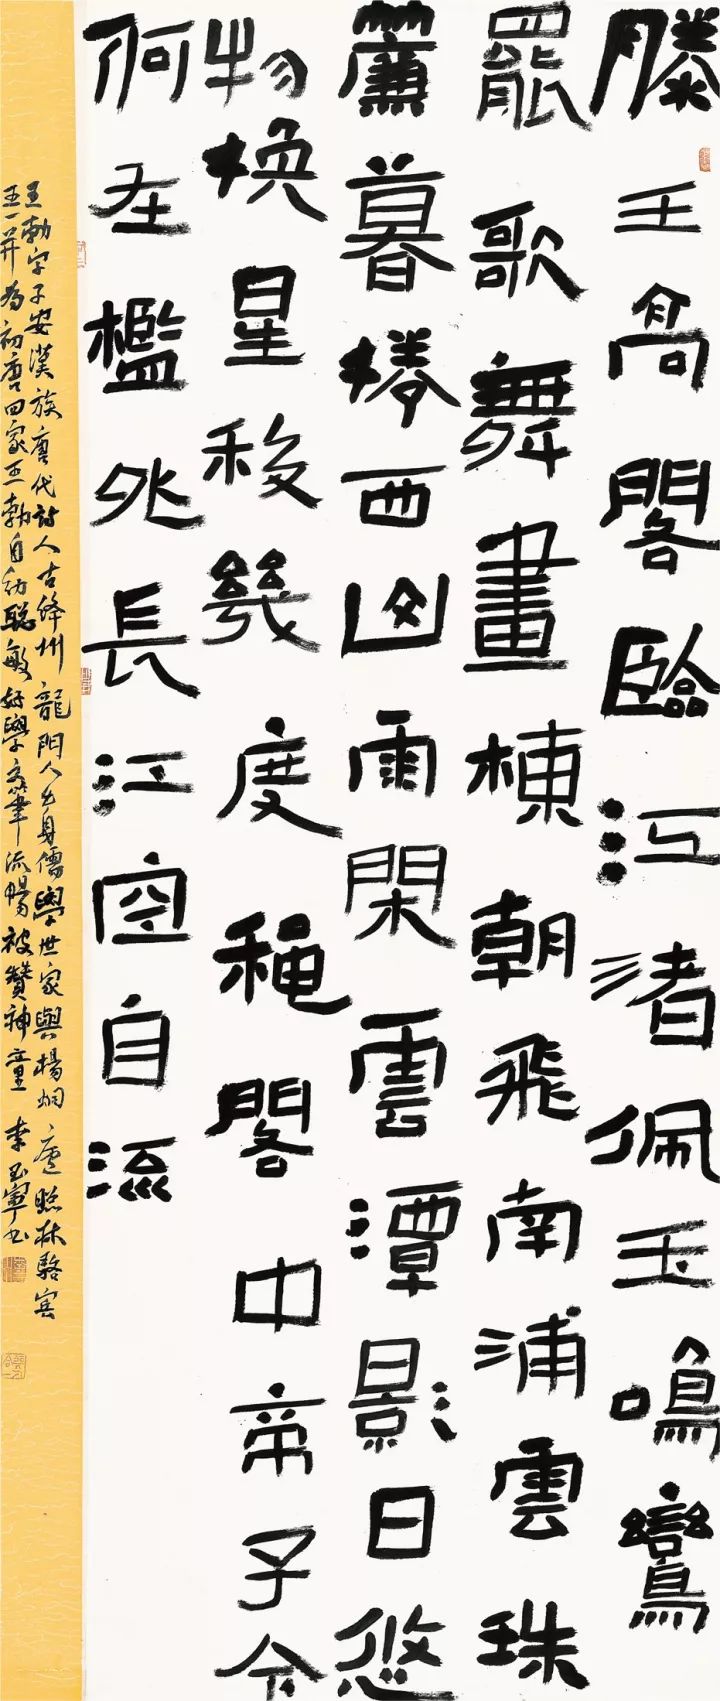 滕王高閣臨江渚佩玉鳴鸞
罷歌舞畫棟朝飛南浦雲珠
簾暮捲西山雨閑雲潭影日悠
物換星移幾度穐閣中帝子今
何在檻外長江空自流
王勃字子安漢族唐代詩人古絳州龍門人出身儒學世家與楊炯盧照林駱賓
王一并為初唐四家王勃自幼聰敏好學文筆流暢被贊神童 李玉寧书